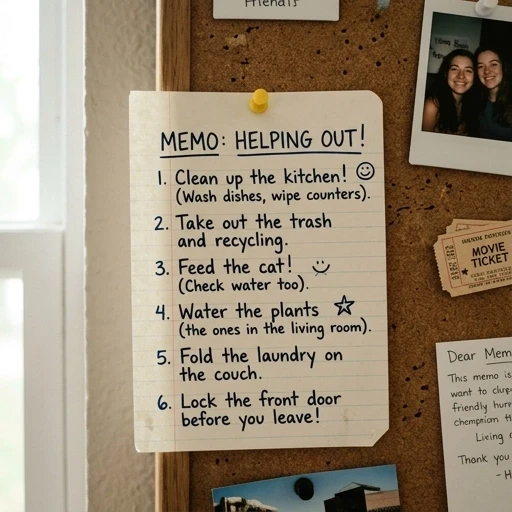 Friends
MEMO: HELPING OUT!
1. Clean up the kitchen!
(Wash dishes, wipe counters).
2. Take out the trash
and recycling.
3. Feed the cat!
(Check water too).
4. Water the plants
(the ones in the living room).
5. Fold the laundry on
the couch.
6. Lock the front door
before you leave!
MOVIE
TICKET
Dear Mem
This memo is
want to
friendly
Living
Thank you
- H